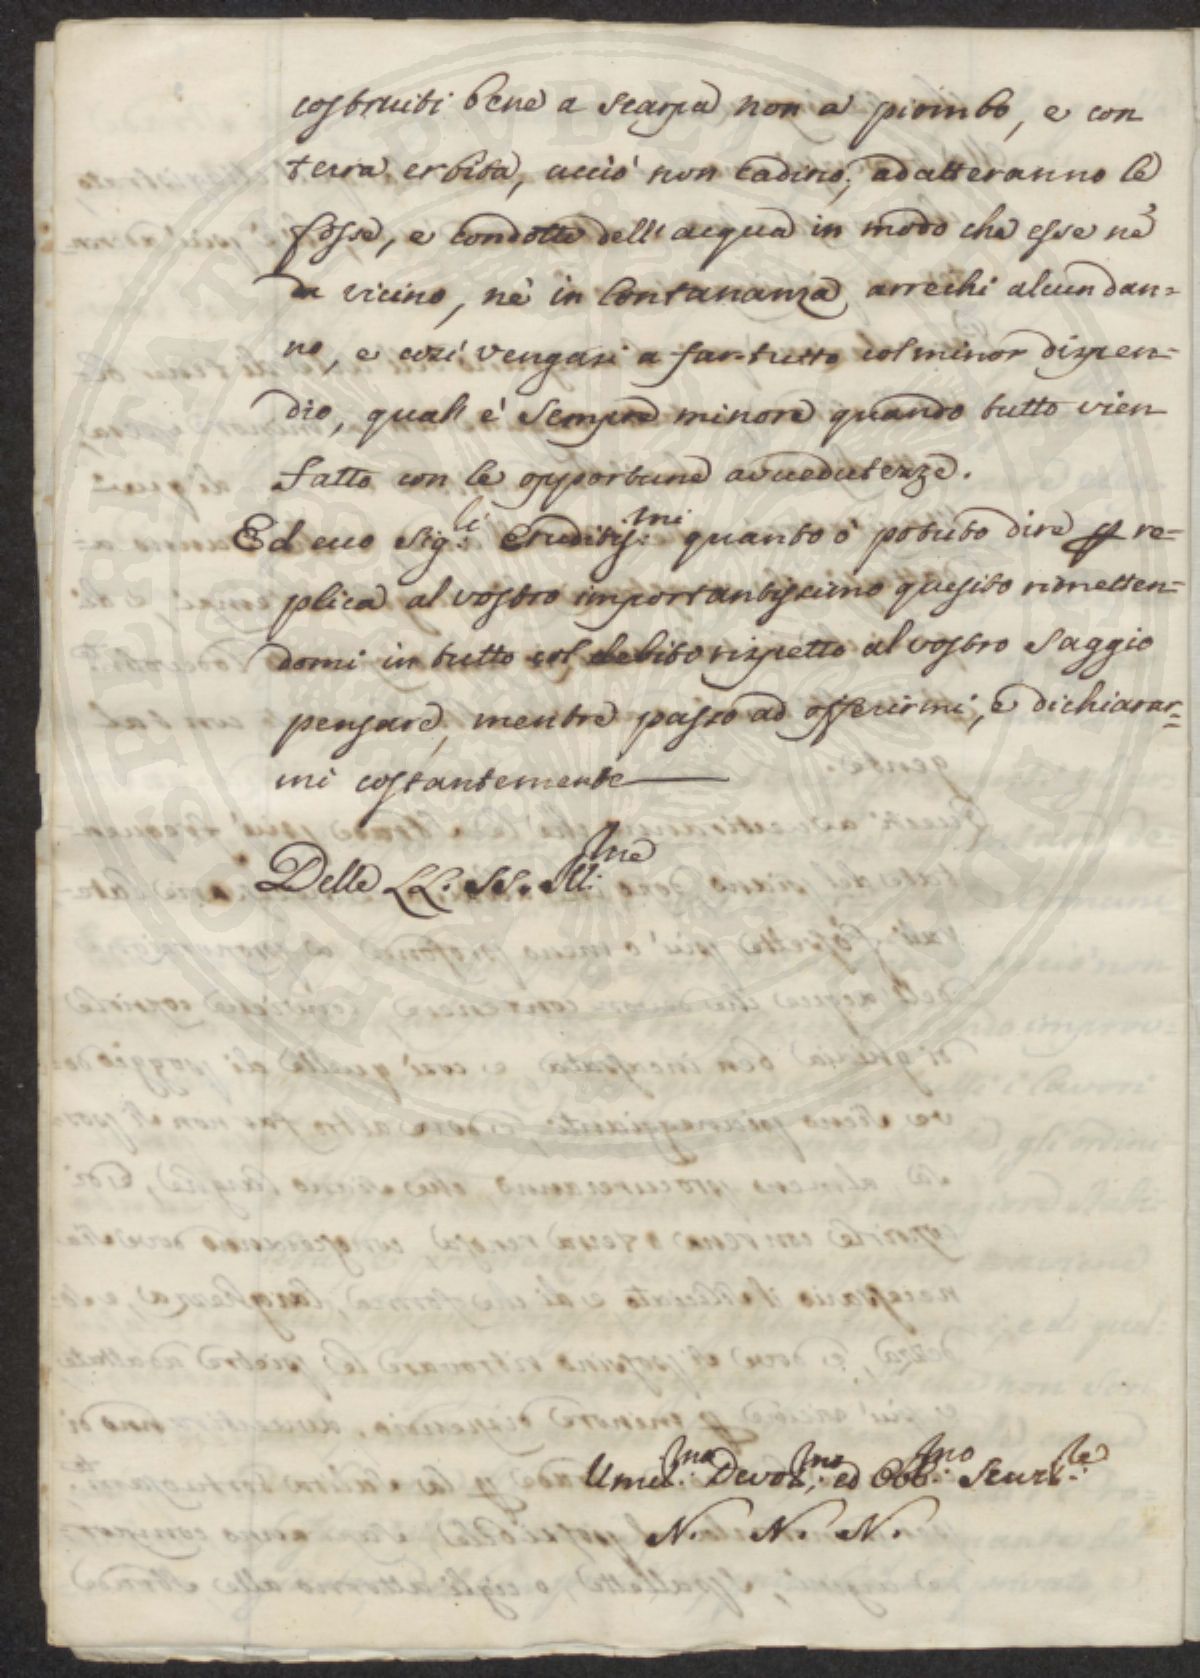 costruiti bene a scarpa non a piombo, e con
terra erbita, acciò non cadino; adatteranno le
fosse, e condotte dell'acqua in modo che esse nè
da vicino, nè in lontananza arrechi alcun dan=
no, e così vengasi a far tutto col minor dispen=
dio, qual è sempre minore quando tutto vien
fatto con le opportune avvedutezze.
Ed ecco Sig:ri Eruditis:mi quanto ò potuto dire p re=
plica al vostro importantissimo quesito rimetten=
domi in tutto col debito rispetto al vostro saggio
pensare, mentre passo ad offerirmi, e dichiarar=
mi costantemente
Delle LL. SS. Ill:me
Umil:mo Devot:mo ed Obb:mo Serv:le
N. N. N.